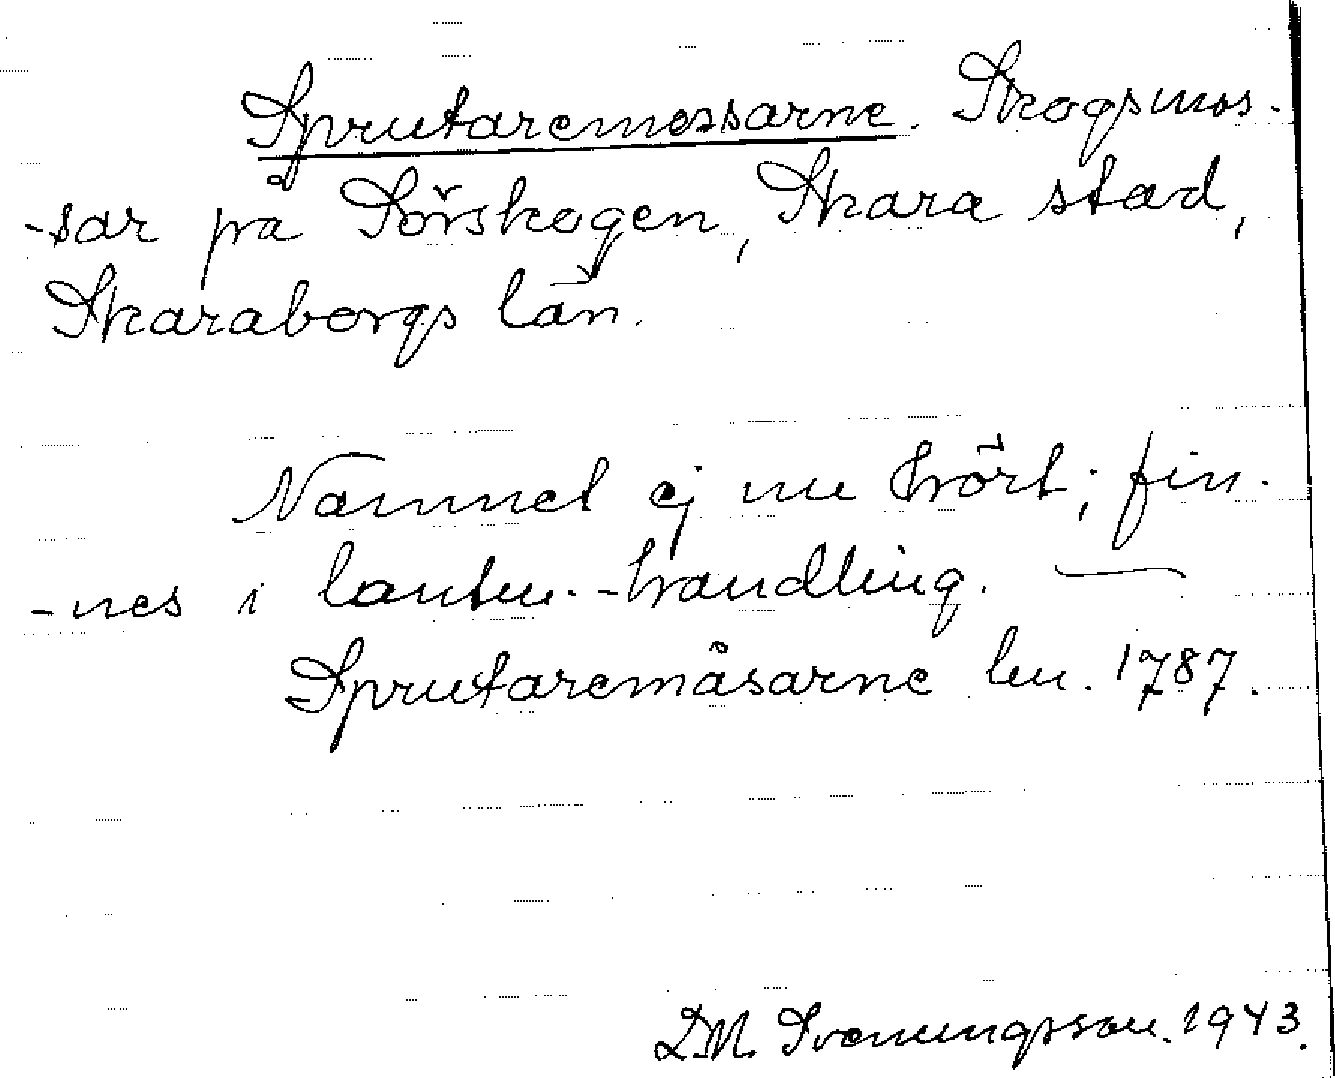 Sprutaremossarne. Skogsmos-
-sar på Sörskogen, Skara stad,
Skaraborgs län.
Namnet ej nu hört; fin-
-nes i lantm.-handling. —
Sprutaremåsarne lm. 1787.
D.M. Svenningsson. 1943.